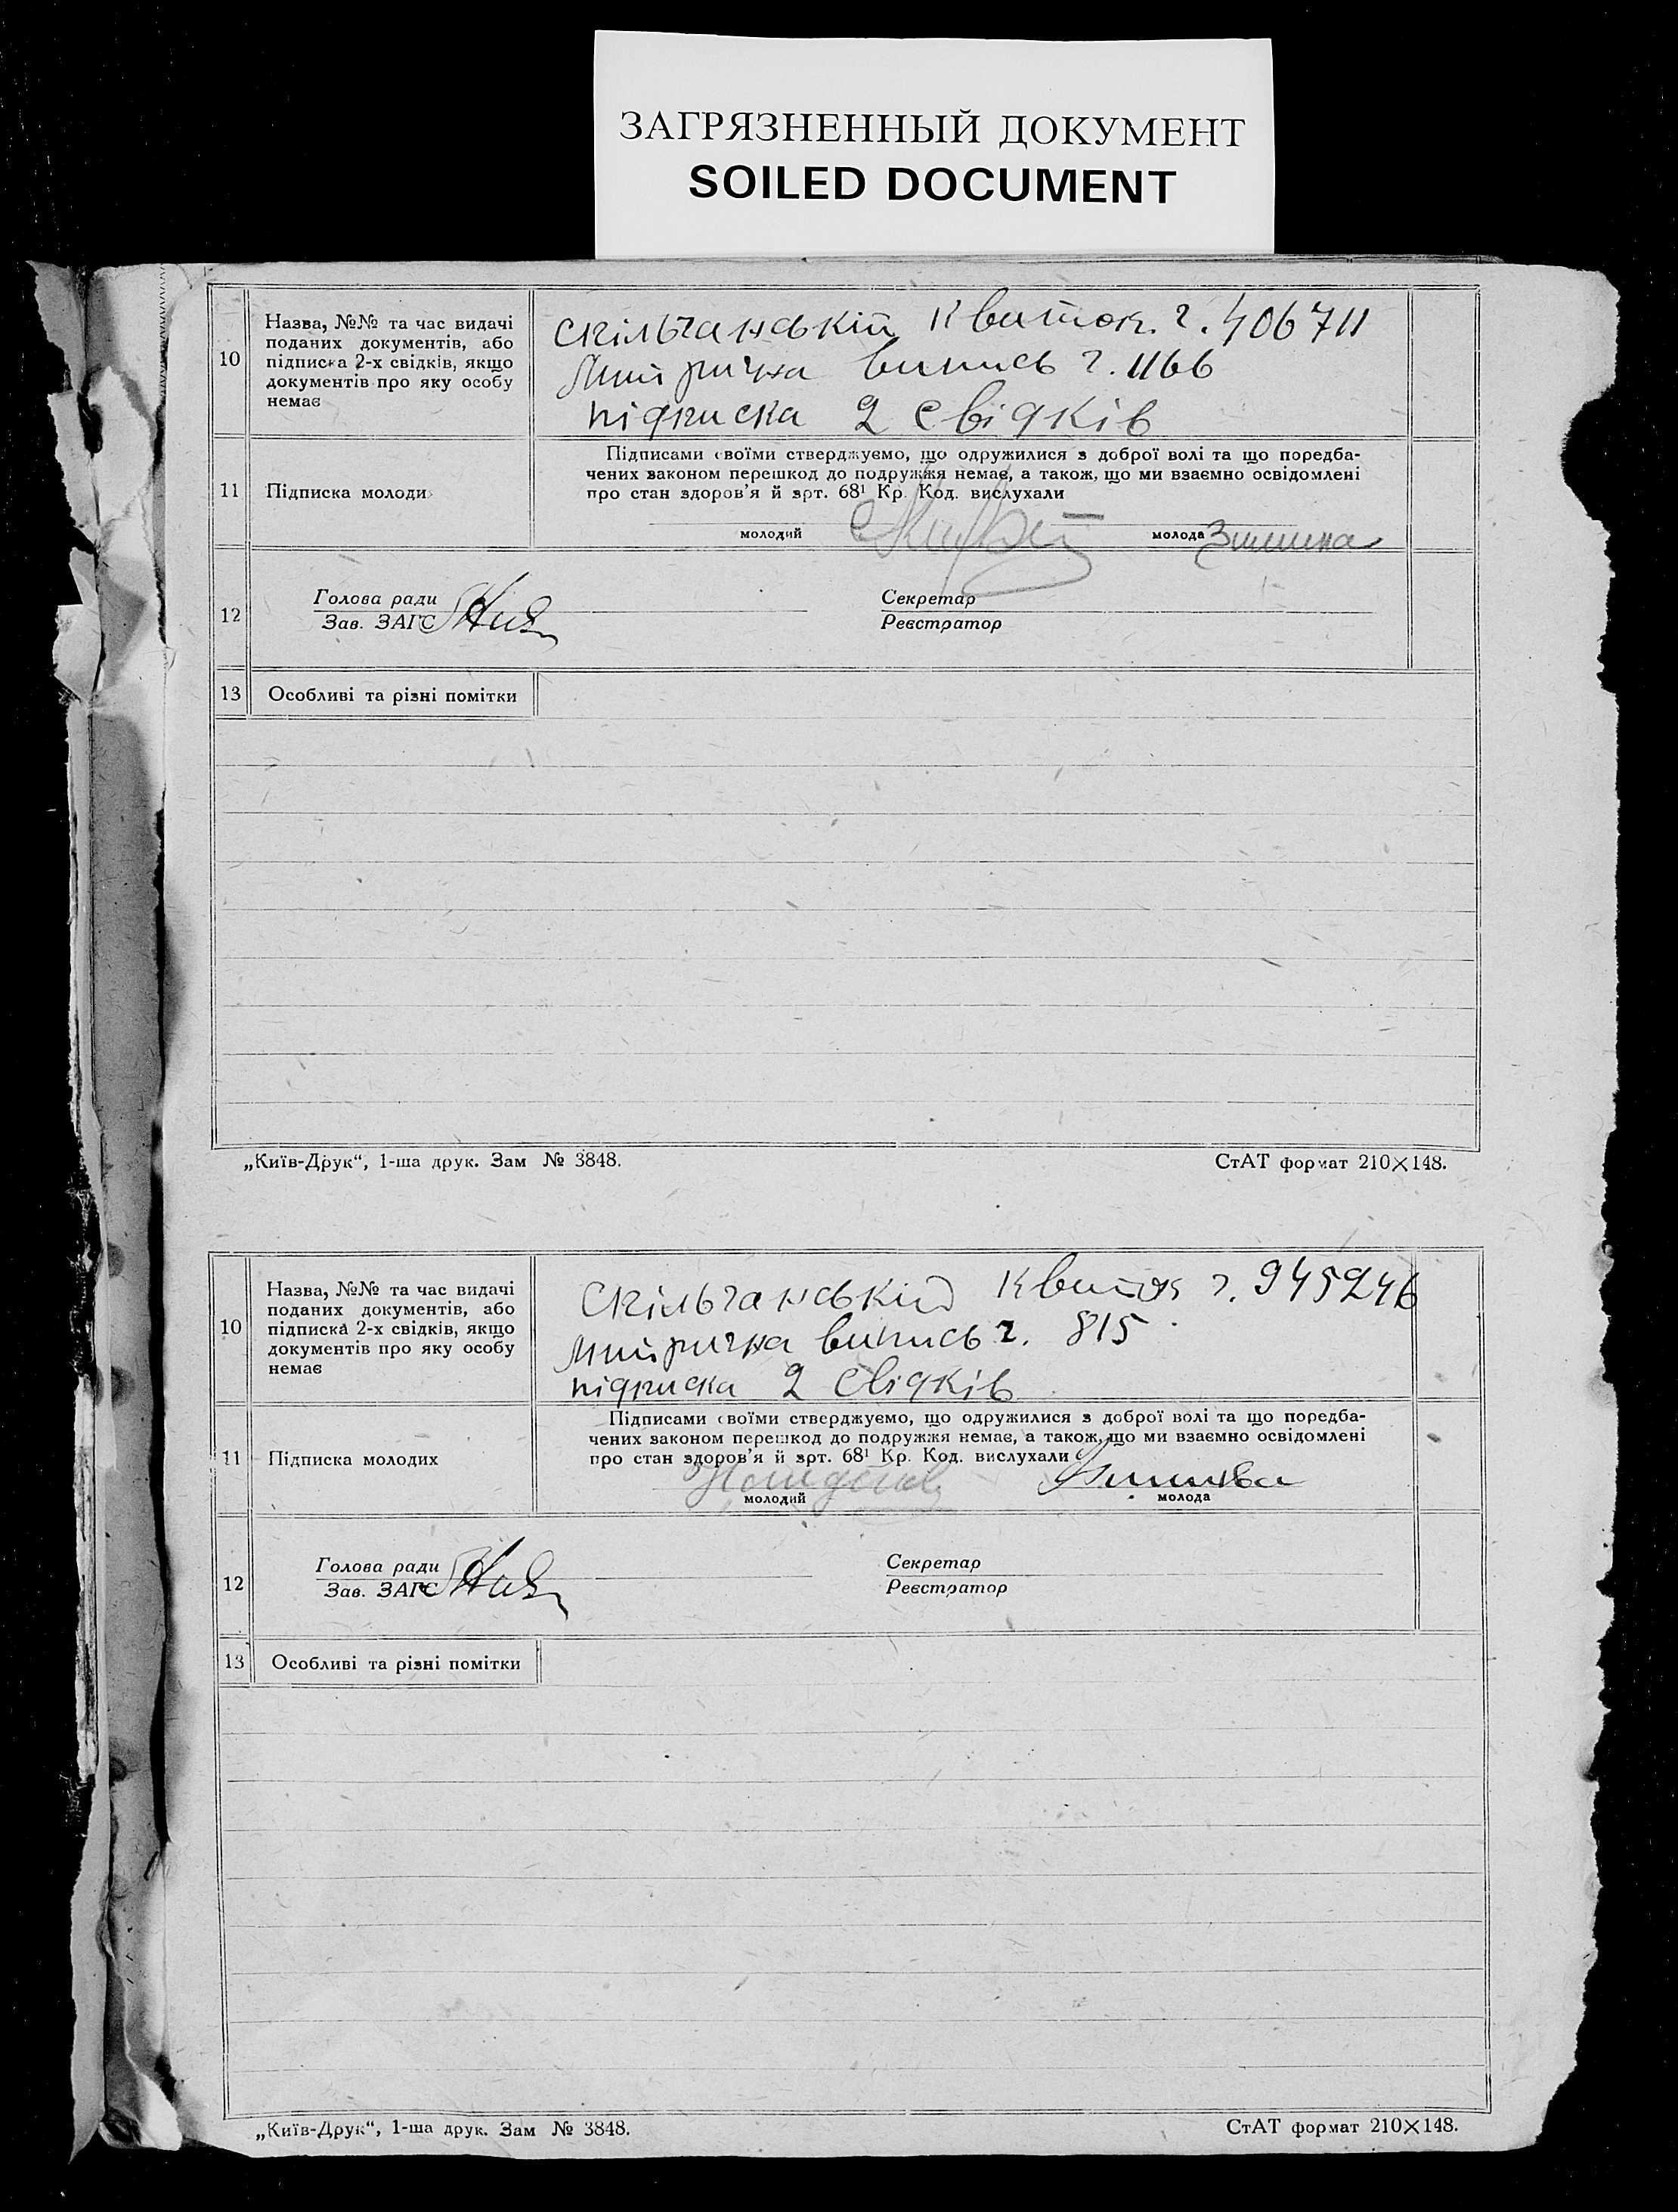 ЗАГРЯЗНЕННЫЙ ДОКУМЕНТ
SOILED DOCUMENT
10
Назва, №№ та час видачі
поданих документів, або
підписка 2-х свідків, якщо
документів про яку особу
немає
спільчанській квиток ч. 406711
Митрична випись ч. 1166
підписка 2 свідків
11
Підписка молоди
Підписами своїми стверджуємо, що одружилися з доброї волі та що поредба-
чених законом перешкод до подружжя немає, а також, що ми взаємно освідомлені
про стан здоров'я й арт. 68¹ Кр. Код. вислухали
молодий
молода Зимина
12
Голова ради
Зав. ЗАГС
Секретар
Реєстратор
13
Особливі та різні помітки
„Київ-Друк“, 1-ша друк. Зам № 3848.
СтАТ формат 210×148.
10
Назва, №№ та час видачі
поданих документів, або
підписка 2-х свідків, якщо
документів про яку особу
немає
Спільчанський квиток ч. 945246
Митрична випись ч. 815
підписка 2 свідків
11
Підписка молодих
Підписами своїми стверджуємо, що одружилися з доброї волі та що поредба-
чених законом перешкод до подружжя немає, а також, що ми взаємно освідомлені
про стан здоров'я й арт. 68¹ Кр. Код. вислухали
молодий
молода
12
Голова ради
Зав. ЗАГС
Секретар
Реєстратор
13
Особливі та різні помітки
„Київ-Друк“, 1-ша друк. Зам № 3848.
СтАТ формат 210×148.